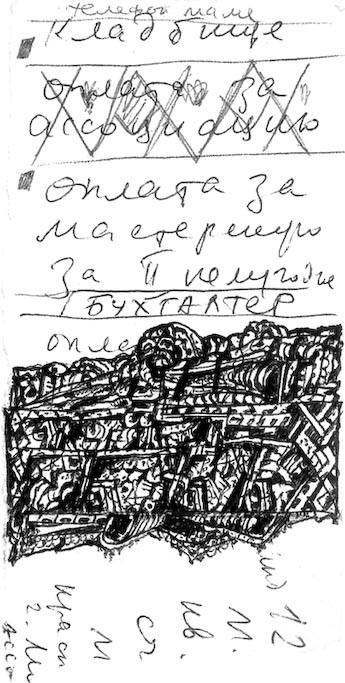 телефон маме
кладбище
оплата за
ассоциацию
оплата за
мастерскую
за II полугодие
БУХГАЛТЕР
опла
12
М.
кв.
сч
М